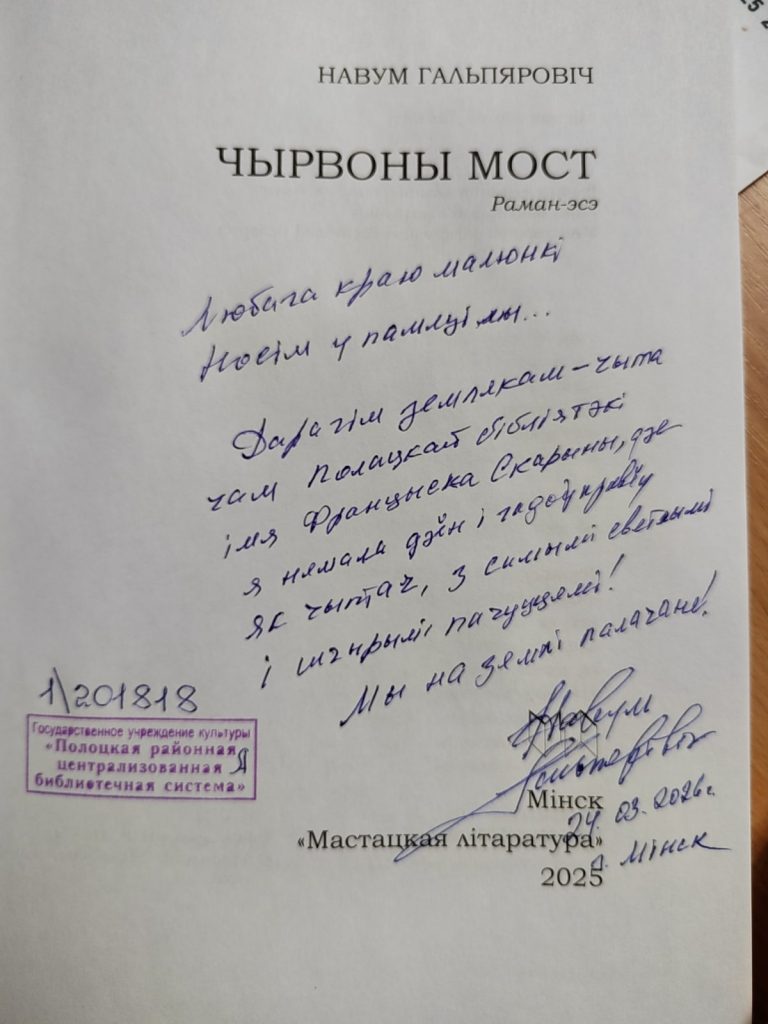 НАВУМ ГАЛЬПЯРОВІЧ
ЧЫРВОНЫ МОСТ
Раман-эсэ
Любага краю малюнкі
Носім у памяці мы...
Дарагім землякам – чыта
чам Полацкай бібліятэкі
імя Францыска Скарыны, дзе
я нямала дзён і гадоў правёў
як чытач, з самымі светлымі
і шчырымі пачуццямі!
Мы на зямлі палачане!
1\201818
Государственное учреждение культуры
«Полоцкая районная
централизованная
библиотечная система»
Навум
Гальпяровіч
Мінск
24.03.2026г.
«Мастацкая літаратура»
г. Мінск
2025